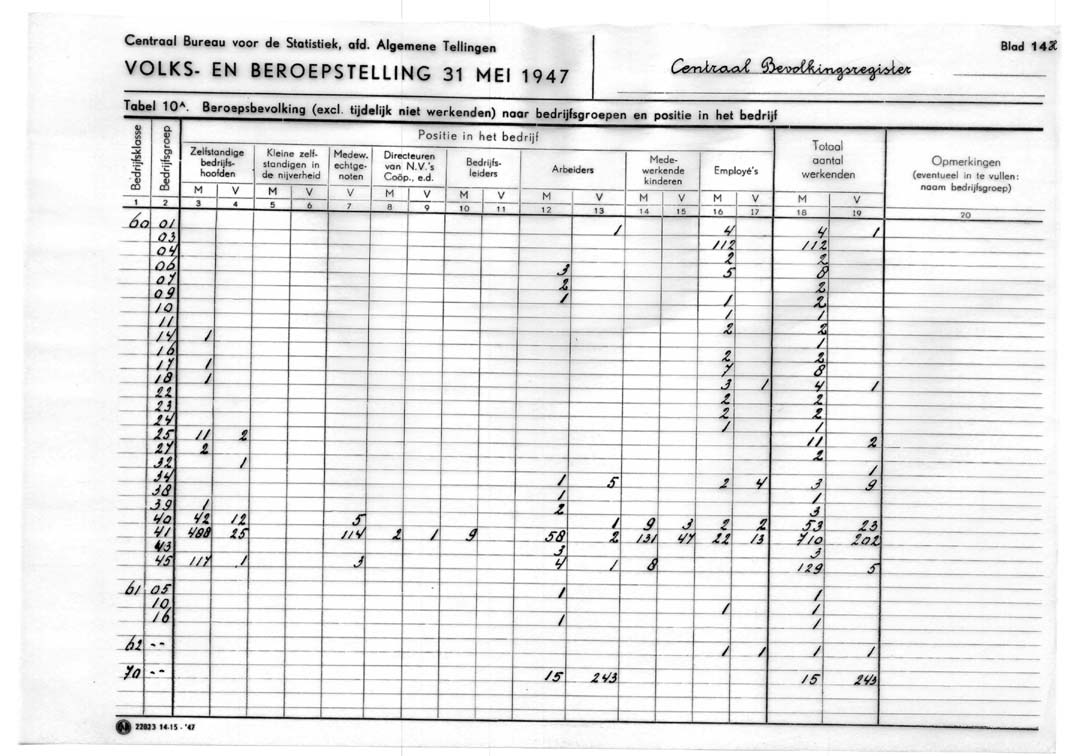 Centraal Bureau voor de Statistiek, afd. Algemene Tellingen
VOLKS- EN BEROEPSTELLING 31 MEI 1947
Centraal Bevolkingsregister
Blad 143
Tabel 10^. Beroepsbevolking (excl. tijdelijk niet werkenden) naar bedrijfsgroepen en positie in het bedrijf
Bedrijfsklasse
Bedrijfsgroep
Positie in het bedrijf
Zelfstandige bedrijfs- hoofden
Kleine zelf- standigen in de nijverheid
Medew. echtge- noten
Directeuren van N.V.'s Coöp., e.d.
Bedrijfs- leiders
Arbeiders
Mede- werkende kinderen
Employé's
Totaal aantal werkenden
Opmerkingen (eventueel in te vullen: naam bedrijfsgroep)
M V M V V M V M V M V M V M V M V
1 2 3 4 5 6 7 8 9 10 11 12 13 14 15 16 17 18 19 20
60 01 1 4 4 1
03 112 112
04 2 2
06 3 5 8
07 2 2
09 1 1 2
10 1 1
11 2 2
14 1 1
16 2 2
17 1 7 8
18 1 3 1 4 1
22 2 2
23 2 2
24 1 1
25 11 2 11 2
27 2 2
32 1 1
34 1 5 2 4 3 9
38 1 1
39 1 2 3
40 42 12 5 1 9 3 2 2 53 23
41 488 25 114 2 1 9 58 2 131 47 22 13 710 202
43 3 3
45 117 1 3 4 1 8 129 5
61 05 1 1
10 1 1
16 1 1
62 -- 1 1 1 1
70 -- 15 243 15 243
22823 14-15 - '47